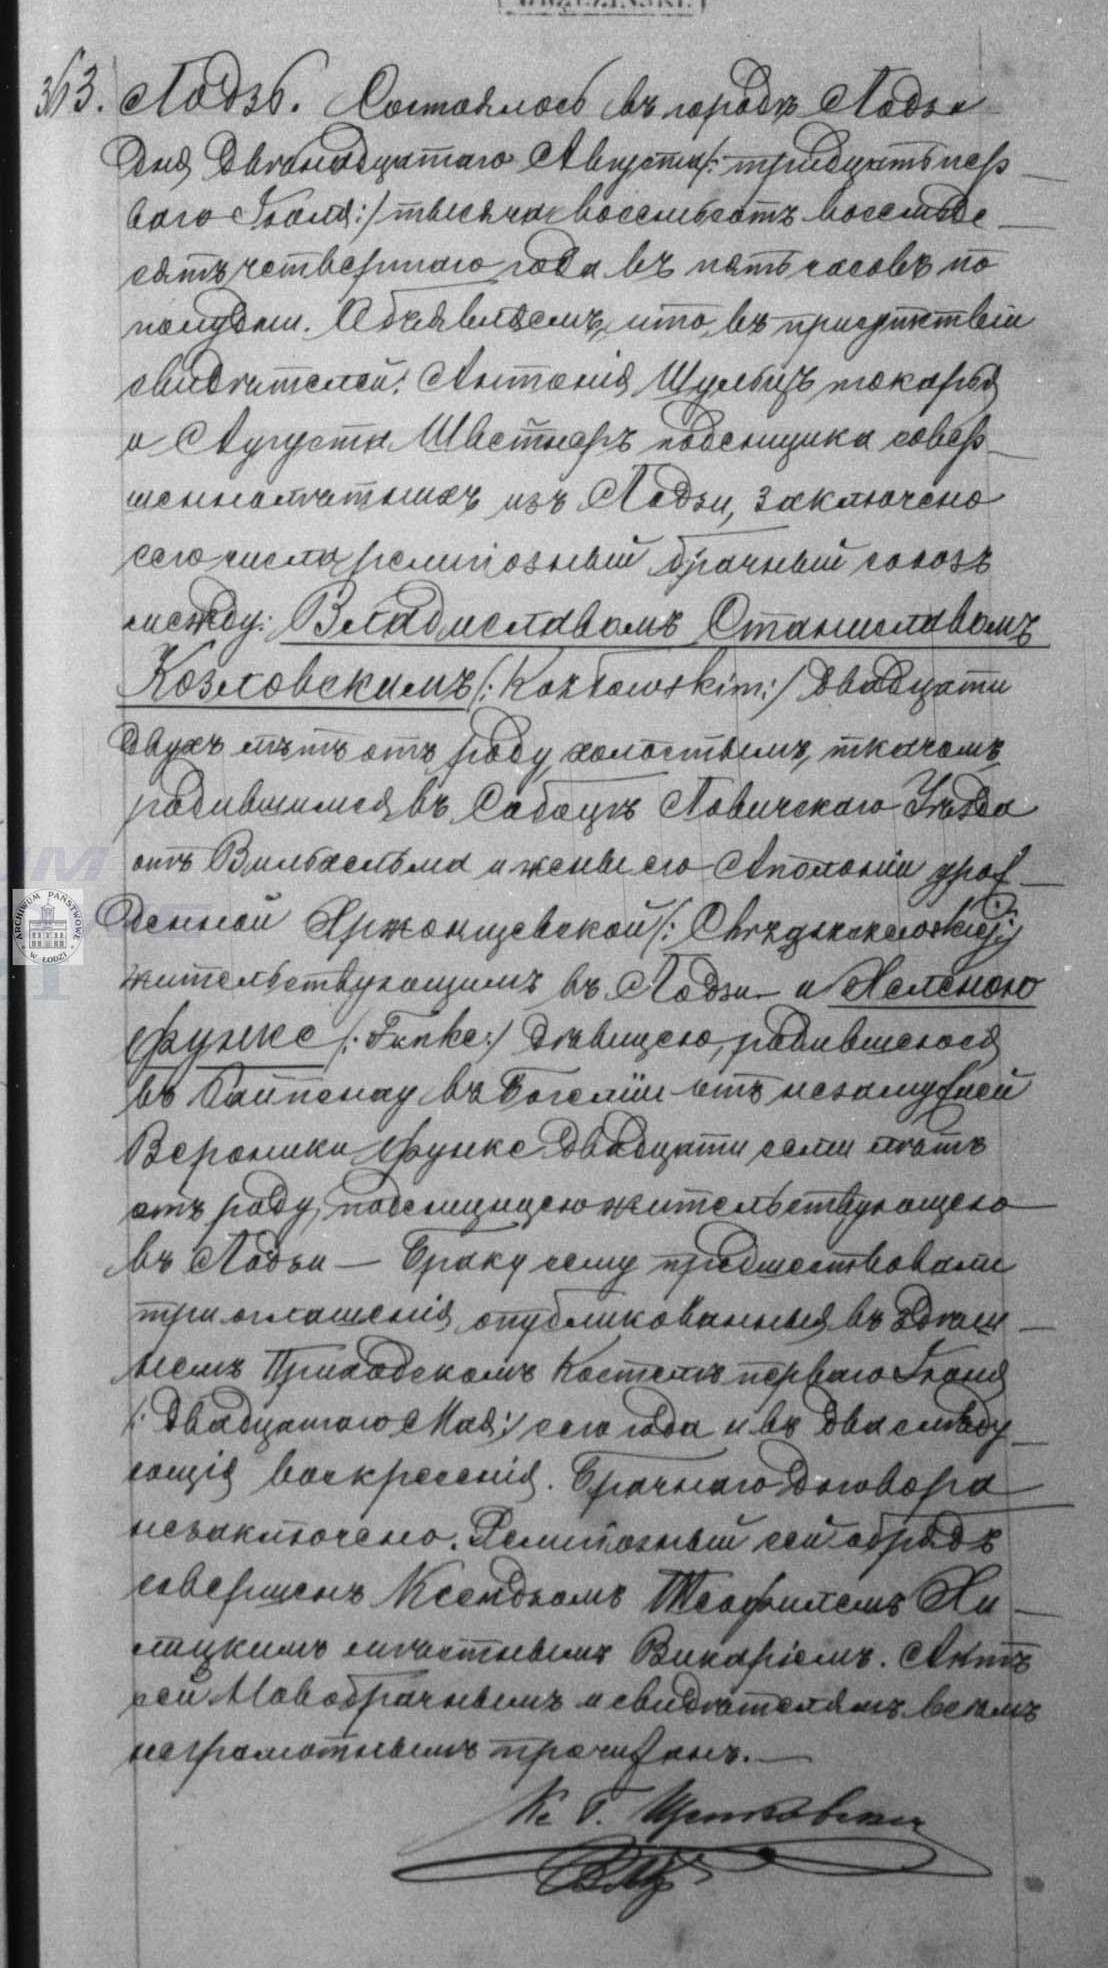 BRZEZIŃSKI
363. Лодзь. Состоялось въ городѣ Лодзи
дня двѣнадцатаго Августа /: тридцать пер
ваго Іюля :/ тысяча восемьсотъ восемьде
сятъ четвертаго года въ пять часовъ по
полудни. Объявляемъ, что въ присутствіи
свидѣтелей: Антонія Шульцъ токарья
и Августа Швестнеръ поденщика совер
шеннолѣтныхъ изъ Лодзи, заключено
сего числа религіозный брачный союзъ
между: Владиславомъ Станиславомъ
Козловскимъ /: Kozłowskim :/ двадцати
двухъ лѣтъ отъ роду, холостымъ, ткачомъ,
родившимся въ Соботцѣ Ловичскаго Уѣзда
отъ Вильгельма и жены его Аполоніи урож
денной
жительствующимъ въ Лодзи и Хеленою
Функе /: Funke :/ дѣвицею, родившеюся
въ Гайненау въ Богеміи отъ незамужней
Вероники Функе двадцати семи лѣтъ
отъ роду, поденщицею жительствующею
въ Лодзи — Браку сему предшествовали
три оглашенія опубликованныя въ здѣш
немъ Приходскомъ Костелѣ перваго Іюня
/: двадцатаго Мая :/ сего года и въ два слѣду
ющія воскресенія. Брачнаго договора
незаключено. Религіозный сей обрядъ
совершенъ Ксендзомъ Теофилемъ Хи
лицкимъ мѣстнымъ Викаріемъ. Актъ
сей Новобрачнымъ и свидѣтелямъ всѣмъ
неграмотнымъ прочитанъ. —
Кс Г.
ARCHIWUM PAŃSTWOWE
W ŁODZI